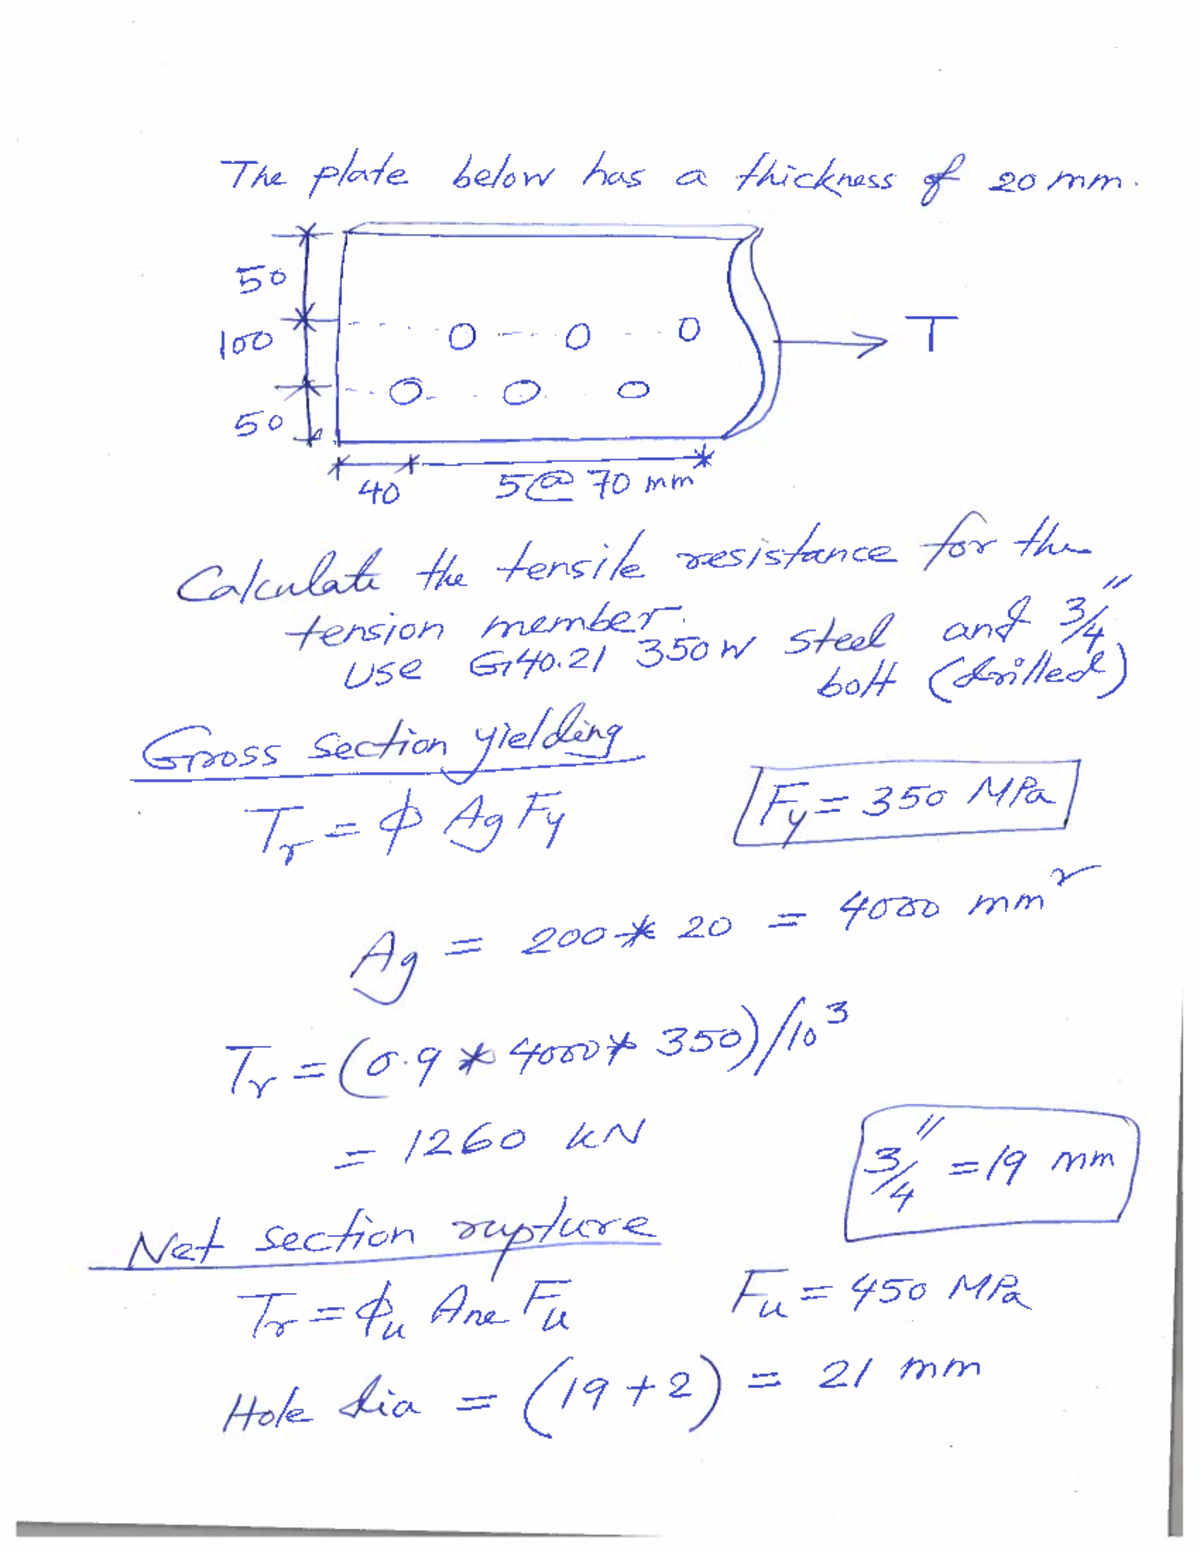 The plate below has a thickness of 20 mm.
50
100
50
T
40
5@ 70 mm
Calculate the tensile resistance for the
tension member.
Use G40.21 350W steel and 3/4"
bolt (drilled)
Gross section yielding
Tr = ϕ Ag Fy
Fy = 350 MPa
Ag = 200 * 20 = 4000 mm²
Tr = (0.9 * 4000 * 350)/10³
= 1260 kN
3/4" = 19 mm
Net section rupture
Tr = ϕu Ane Fu
Fu = 450 MPa
Hole dia = (19 + 2) = 21 mm